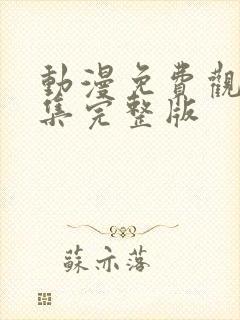 動漫免費觀
集完整版
蘇亦落